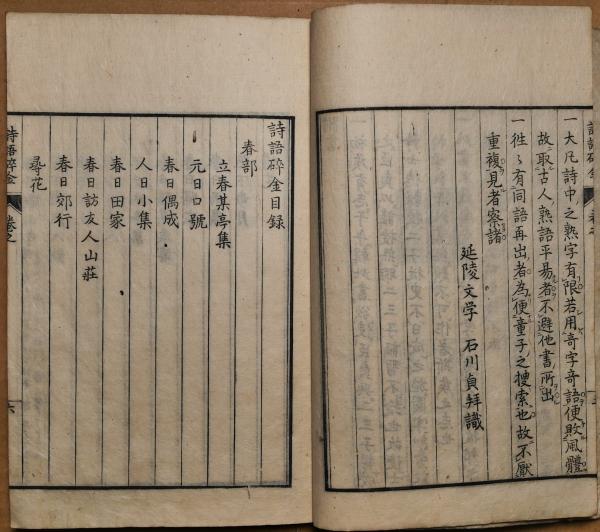 一大凡詩中之熟字有限若用奇字奇語便敗風體
故取古人熟語平易者不避他書所出
一徃〻有同語再出者為便童子之搜索也故不厭
重複見者察諸
延陵文學 石川貞拜識
詩語碎金目録
春部
立春某亭集
元日口號
春日偶成
人日小集
春日田家
春日訪友人山莊
春日郊行
尋花
詩語碎金 卷之
六